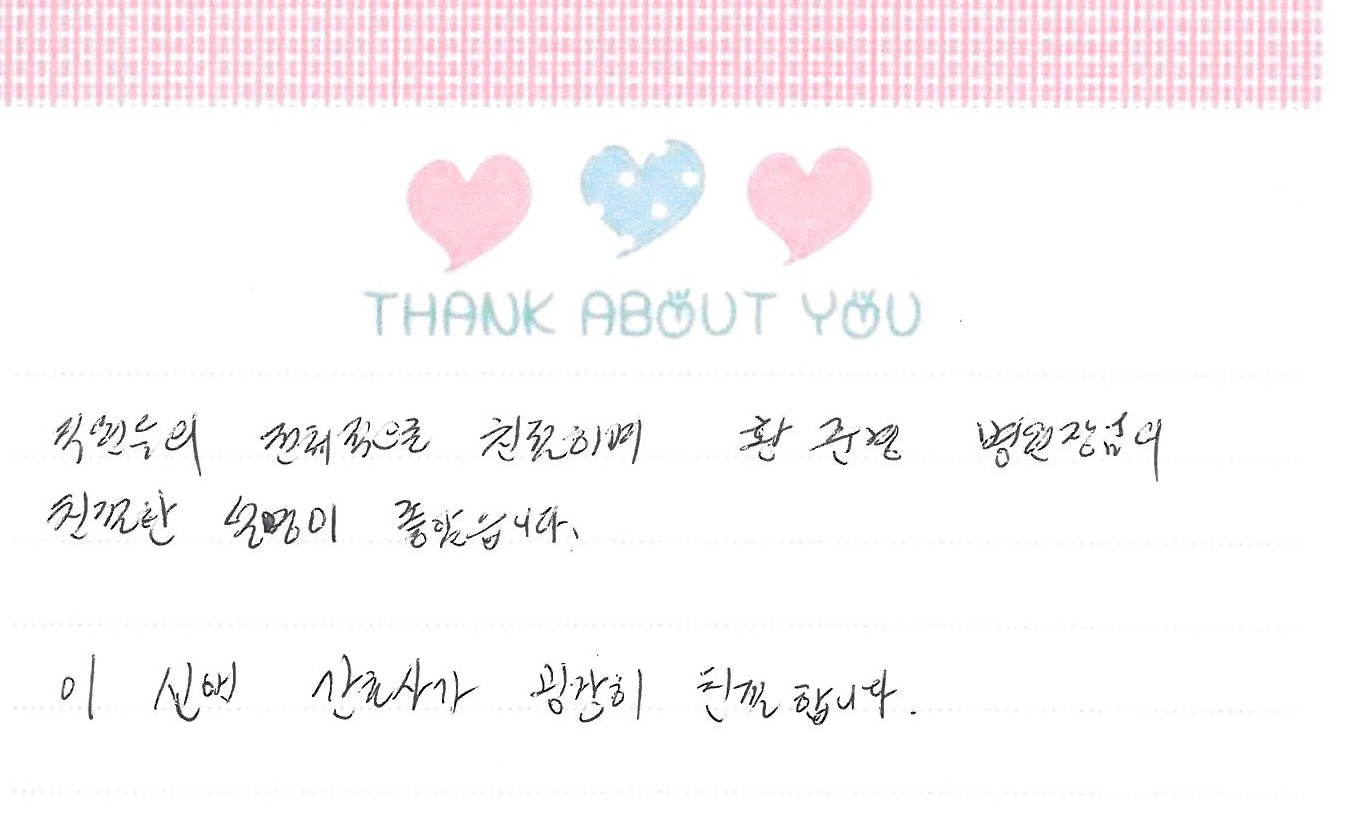 THANK ABOUT YOU
직원들의 전체적으로 친절하며 황 준영 병원장님의
친절한 설명이 좋았습니다.
이 신애 간호사가 굉장히 친절합니다.